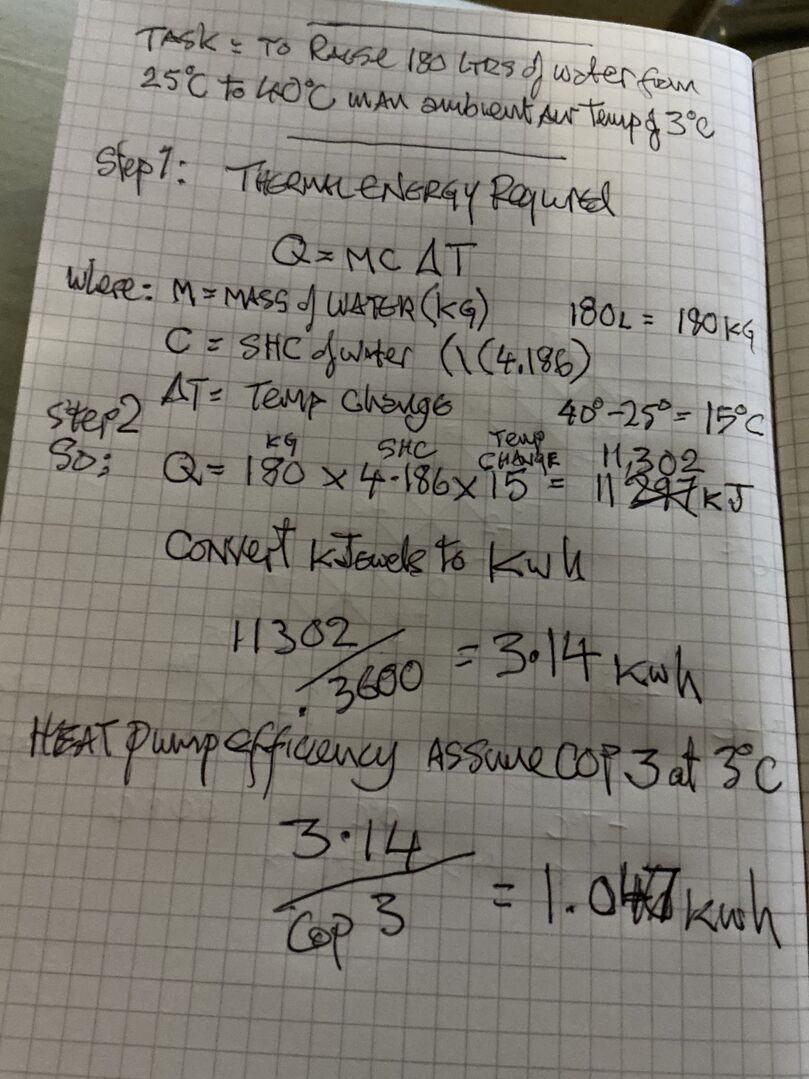 TASK = TO RAISE 180 LTRS of water from
25°C to 40°C in AN ambient Air Temp of 3°C
Step 1: THERMAL ENERGY Required
Q = MC ΔT
where: M = MASS of WATER (KG) 180L = 180KG
C = SHC of water (4.186)
ΔT = Temp Change 40° - 25° = 15°C
Step 2
KG SHC Temp CHANGE 11,302
So; Q = 180 x 4.186 x 15 = 11 297 KJ
Convert KJowels to Kwh
11302 / 3600 = 3.14 Kwh
HEAT pump efficiency ASSUME COP 3 at 3°C
3.14 / COP 3 = 1.047 Kwh